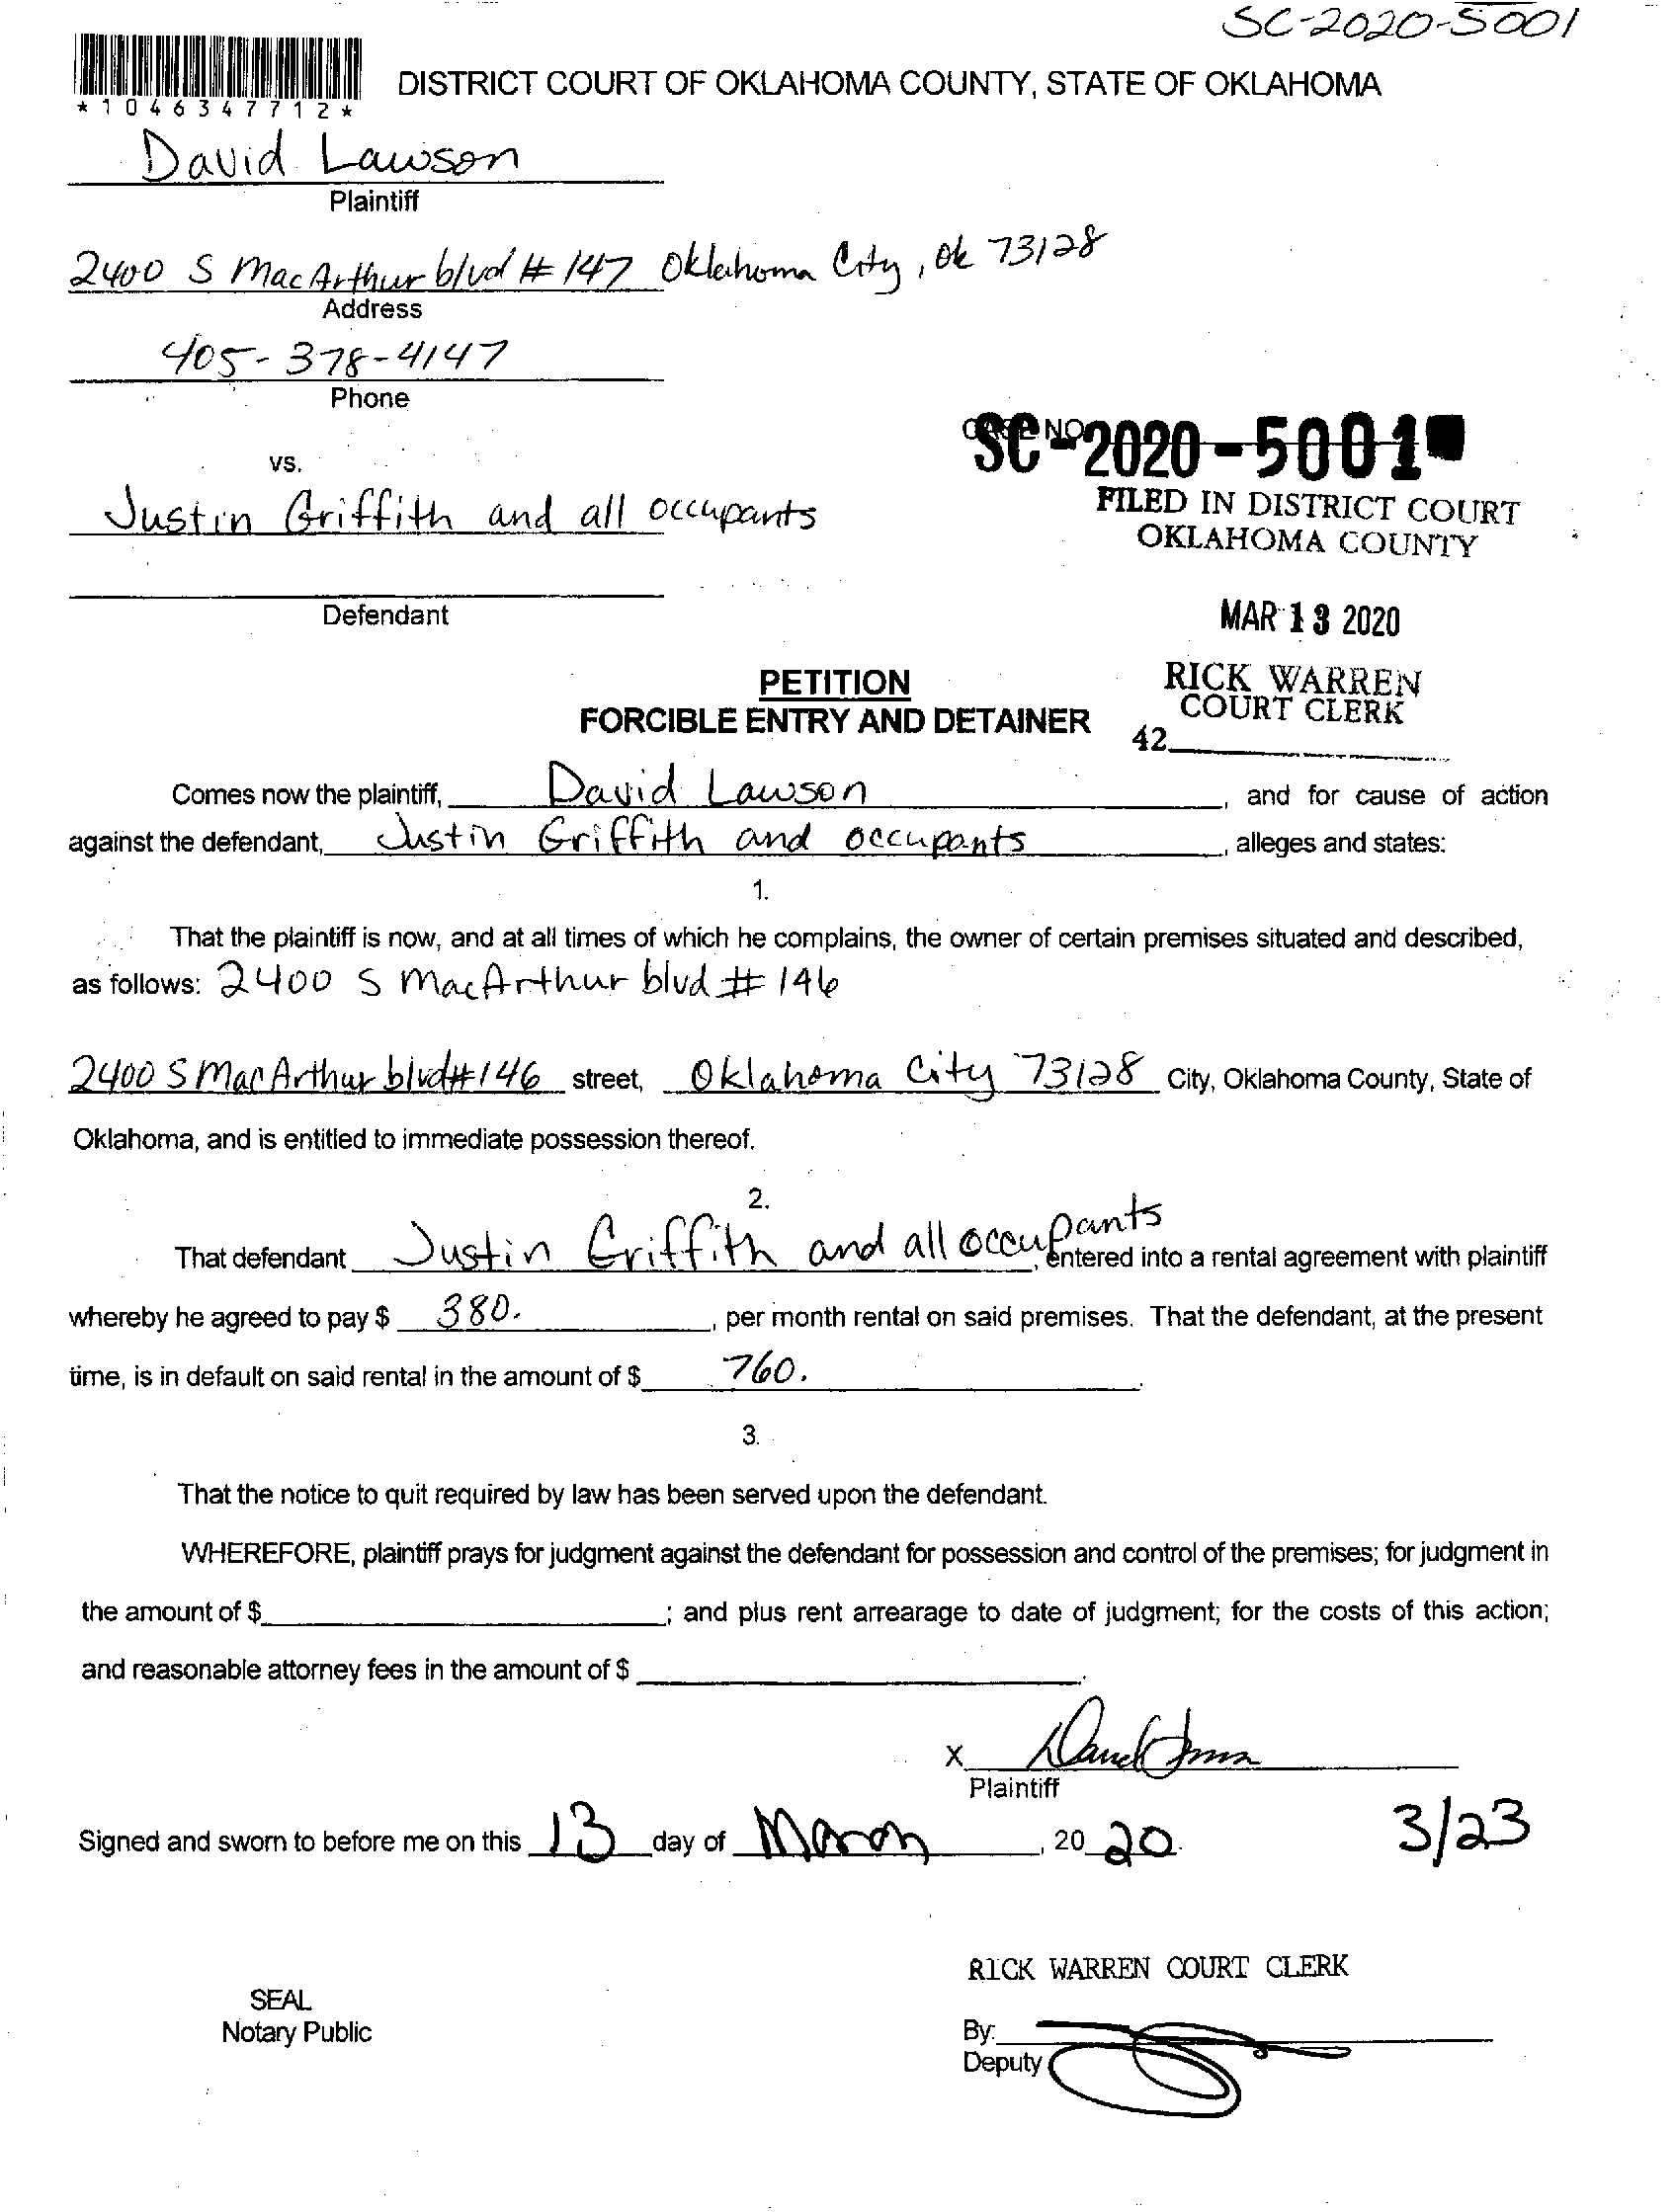 SC-2020-5001
DISTRICT COURT OF OKLAHOMA COUNTY, STATE OF OKLAHOMA
*1046347712*
David Lawson
Plaintiff
2400 S MacArthur blvd # 147 Oklahoma City, Ok 73128
Address
405-378-4147
Phone
CASE NO.
SC-2020-5001
vs.
Justin Griffith and all occupants
FILED IN DISTRICT COURT
OKLAHOMA COUNTY
Defendant
MAR 13 2020
PETITION
FORCIBLE ENTRY AND DETAINER
RICK WARREN
COURT CLERK
42
Comes now the plaintiff, David Lawson, and for cause of action
against the defendant, Justin Griffith and occupants, alleges and states:
1.
That the plaintiff is now, and at all times of which he complains, the owner of certain premises situated and described,
as follows: 2400 S MacArthur blvd # 146
2400 S MacArthur blvd#146 street, Oklahoma City 73128 City, Oklahoma County, State of
Oklahoma, and is entitled to immediate possession thereof.
2.
That defendant Justin Griffith and all occupants, entered into a rental agreement with plaintiff
whereby he agreed to pay $ 380. , per month rental on said premises. That the defendant, at the present
time, is in default on said rental in the amount of $ 760. .
3.
That the notice to quit required by law has been served upon the defendant.
WHEREFORE, plaintiff prays for judgment against the defendant for possession and control of the premises; for judgment in
the amount of $ ; and plus rent arrearage to date of judgment; for the costs of this action;
and reasonable attorney fees in the amount of $ .
X
Plaintiff
Signed and sworn to before me on this 13 day of March, 20 20. 3/23
RICK WARREN COURT CLERK
SEAL
Notary Public
By:
Deputy